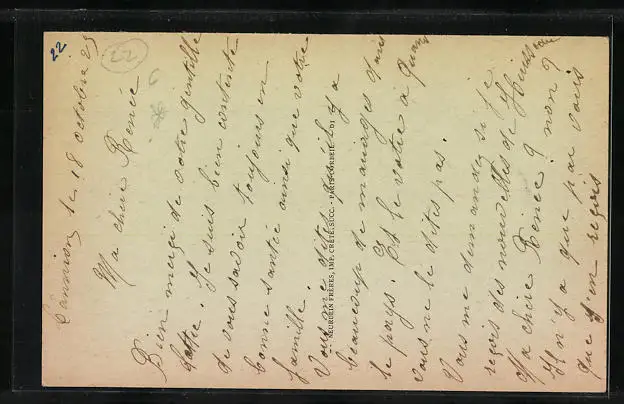 22
22
Lannion, le 18 octobre 25
Ma chère Renée
Bien merci de votre gentille
lettre. Je suis bien contente
de vous savoir toujours en
bonne santée ainsi que votre
famille.
Vous me dites qu'il y a
beaucoup de mariages dans
le pays. Et le votre à quand
vous ne le dites pas.
Vous me demandez si je
reçois des nouvelles de
Ma chère Renée? non?
Il n'y a que par vous
que j'en reçois
NEURDEIN FRÈRES, IMP. CRÉTÉ, SUCC. - PARIS-CORBEIL